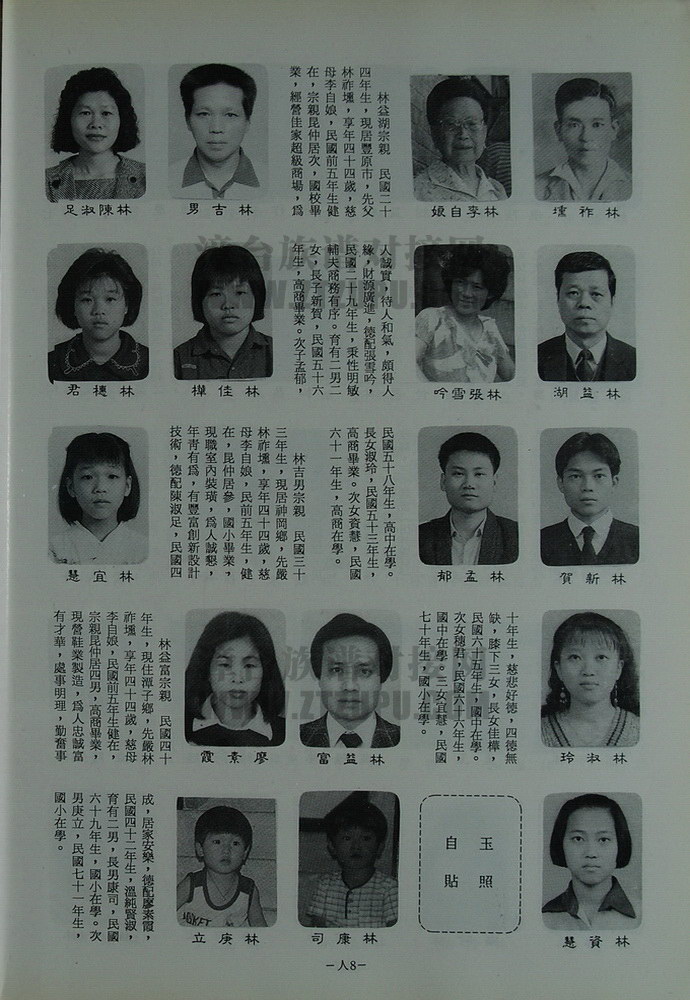 林祚壎
林李自娘
林益湖宗親　民國二十
四年生，現居豐原市，先父
林祚壎，享年四十四歲，慈
母李自娘，民國前五年生健
在，宗親昆仲居次，國校畢
業，經營佳家超級商場，爲
林吉男
林陳淑足
林益湖
林張雪吟
人誠實，待人和氣，頗得人
緣，財源廣進，德配張雪吟，
民國二十九年生，秉性明敏
輔夫商務有序。育有二男二
女，長子新賀，民國五十六
年生，高商畢業。次子孟郁，
林佳樺
林穗君
林新賀
林孟郁
民國五十八年生，高中在學。
長女淑玲，民國五十三年生，
高商畢業。次女資慧，民國
六十一年生，高商在學。
林吉男宗親　民國三十
三年生，現居神岡鄉，先嚴
林祚壎，享年四十四歲，慈
母李自娘，民前五年生，健
在，昆仲居參，國小畢業，
現職室內裝璜，爲人誠懇，
年靑有爲，有豐富創新設計
技術，德配陳淑足，民國四
林宜慧
林淑玲
十年生，慈悲好德，四德無
缺，膝下三女，長女佳樺，
民國六十五年生，國中在學。
次女穗君，民國六十六年生，
國中在學。三女宜慧，民國
七十年生，國小在學。
林益富
廖素霞
林益富宗親　民國四十
年生，現住潭子鄉，先嚴林
祚壎，享年四十四歲，慈母
李自娘，民國前五年生健在，
宗親昆仲居四男，高商畢業，
現營鞋業製造，爲人忠誠富
有才華，處事明理，勤奮事
林資慧
玉照
自貼
林康司
林庚立
成，居家安樂，德配廖素霞，
民國四十二年生，溫純賢淑，
育有二男，長男康司，民國
六十九年生，國小在學。次
男庚立，民國七十一年生，
國小在學。
－人8－